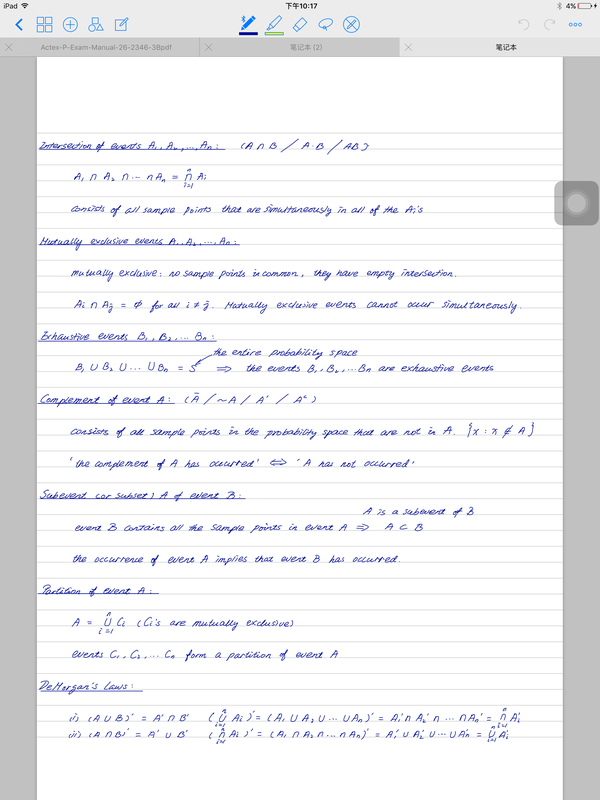 iPad 下午10:17 4%
Actex-P-Exam-Manual-26-2346-3Bpdf 笔记本 (2) 笔记本
Intersection of events A₁, A₂, ..., Aₙ: (A ∩ B / A·B / AB)
A₁ ∩ A₂ ∩ ··· ∩ Aₙ = ⋂ᵢ₌₁ⁿ Aᵢ
consists of all sample points that are simultaneously in all of the Aᵢ's
Mutually exclusive events A₁, A₂, ..., Aₙ:
mutually exclusive: no sample points in common, they have empty intersection.
Aᵢ ∩ Aⱼ = ϕ for all i ≠ j. Mutually exclusive events cannot occur simultaneously.
Exhaustive events B₁, B₂, ... Bₙ:
the entire probability space
B₁ ∪ B₂ ∪ ... ∪ Bₙ = S ⇒ the events B₁, B₂, ... Bₙ are exhaustive events
Complement of event A: (Ā / ~A / A' / Aᶜ)
consists of all sample points in the probability space that are not in A. {x : x ∉ A}
'the complement of A has occurred' ⇔ 'A has not occurred'
Subevent (or subset) A of event B:
A is a subevent of B
event B contains all the sample points in event A ⇒ A ⊂ B
the occurrence of event A implies that event B has occurred.
Partition of event A:
A = ⋃ᵢ₌₁ⁿ Cᵢ (Cᵢ's are mutually exclusive)
events C₁, C₂, ... Cₙ form a partition of event A
DeMorgan's Laws:
(i) (A ∪ B)' = A' ∩ B' (⋃ᵢ₌₁ⁿ Aᵢ)' = (A₁ ∪ A₂ ∪ ··· ∪ Aₙ)' = A₁' ∩ A₂' ∩ ··· ∩ Aₙ' = ⋂ᵢ₌₁ⁿ Aᵢ'
(ii) (A ∩ B)' = A' ∪ B' (⋂ᵢ₌₁ⁿ Aᵢ)' = (A₁ ∩ A₂ ∩ ··· ∩ Aₙ)' = A₁' ∪ A₂' ∪ ··· ∪ Aₙ' = ⋃ᵢ₌₁ⁿ Aᵢ'